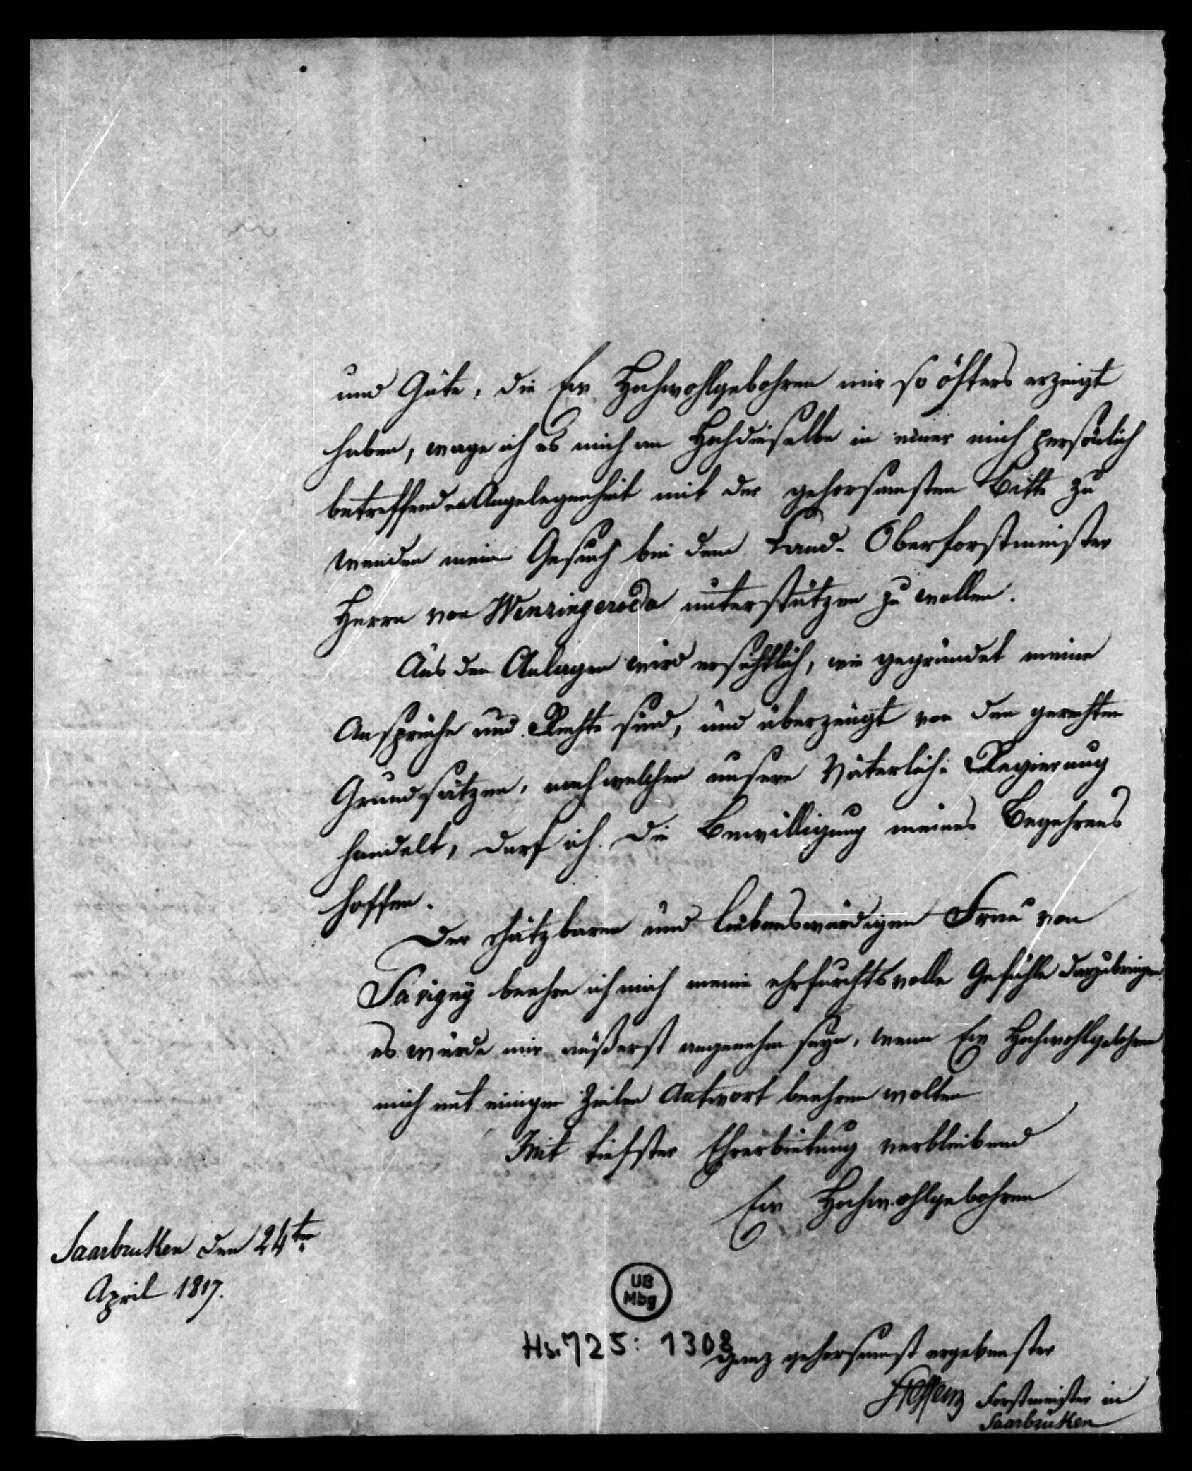 und Güte, die Ew. Hochwohlgebohren mir so öfters erzeigt
haben, wage ich es mich an Hochdieselbe in einer mich persönlich
betreffenden Angelegenheit mit der gehorsamsten Bitte zu
wenden mein Gesuch bei dem Land-Oberforstmeister
Herrn von Winzingeroda unterstützen zu wollen.
Aus den Anlagen wird ersichtlich, wie gegründet meine
Ansprüche und Rechte sind, und überzeugt von den gerechten
Grundsätzen, nach welchen unsere Väterliche Regierung
handelt, darf ich die Bewilligung meines Begehrens
hoffen.
Der schätzbaren und liebenswürdigen Frau von
Savigny beehre ich mich meine ehrfurchtsvolle Gefühle darzubringen
es würde mir äußerst angenehm seyn, wenn Ew Hochwohlgebohren
mich mit einigen Zeilen Antwort beehren wolten
Mit tiefster Ehrerbietung verbleibend
Ew Hochwohlgebohren
Saarbruken den 24ten
April 1817.
UB
Mbg
Hs. 725: 1308
ganz gehorsamst ergebenster
Forstmeister in
Saarbrüken